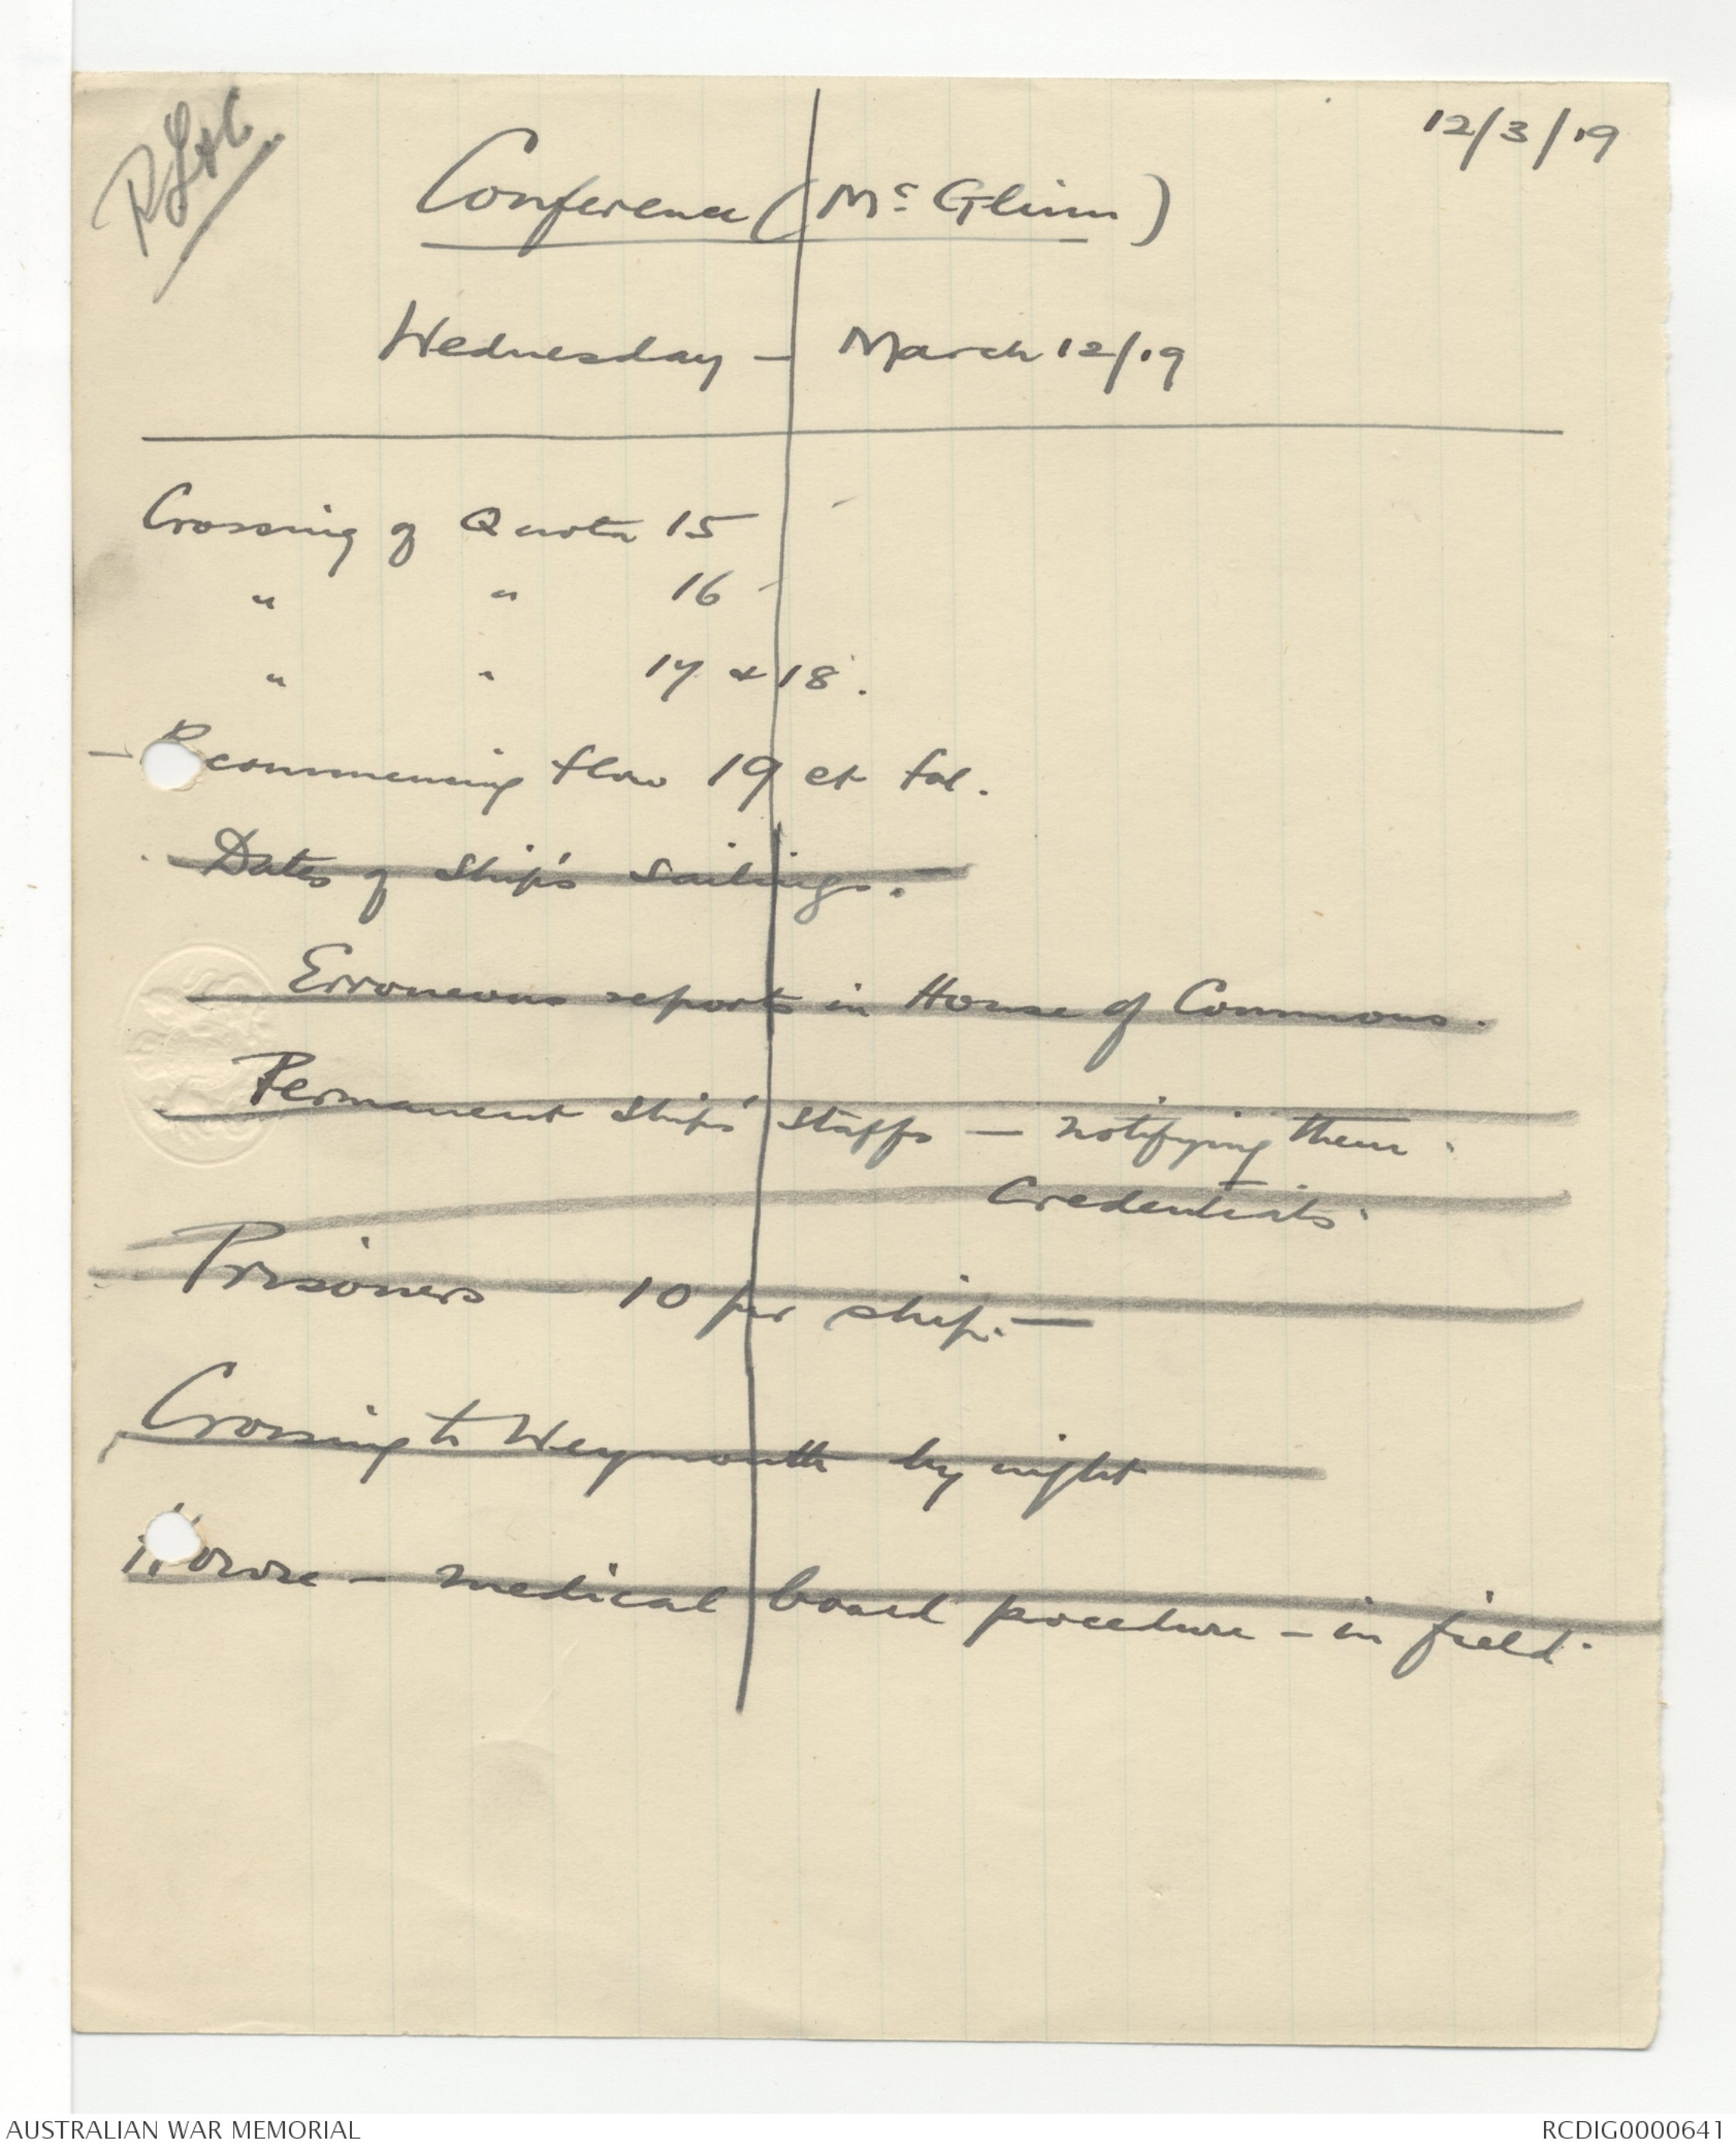 12/3/19
Conference (McGlinn)
Wednesday - March 12/19
Crossing of Quota 15
" " 16
" " 17 & 18.
- Recommencing flow 19 et fol.
Dates of Ship's Sailings.
Erroneous reports in House of Commons.
Permanent Ships' Staffs - notifying them.
Credentials.
Prisoners - 10 per ship. -
Crossing to Weymouth by night
- medical board procedure - in field.
AUSTRALIAN WAR MEMORIAL
RCDIG0000641